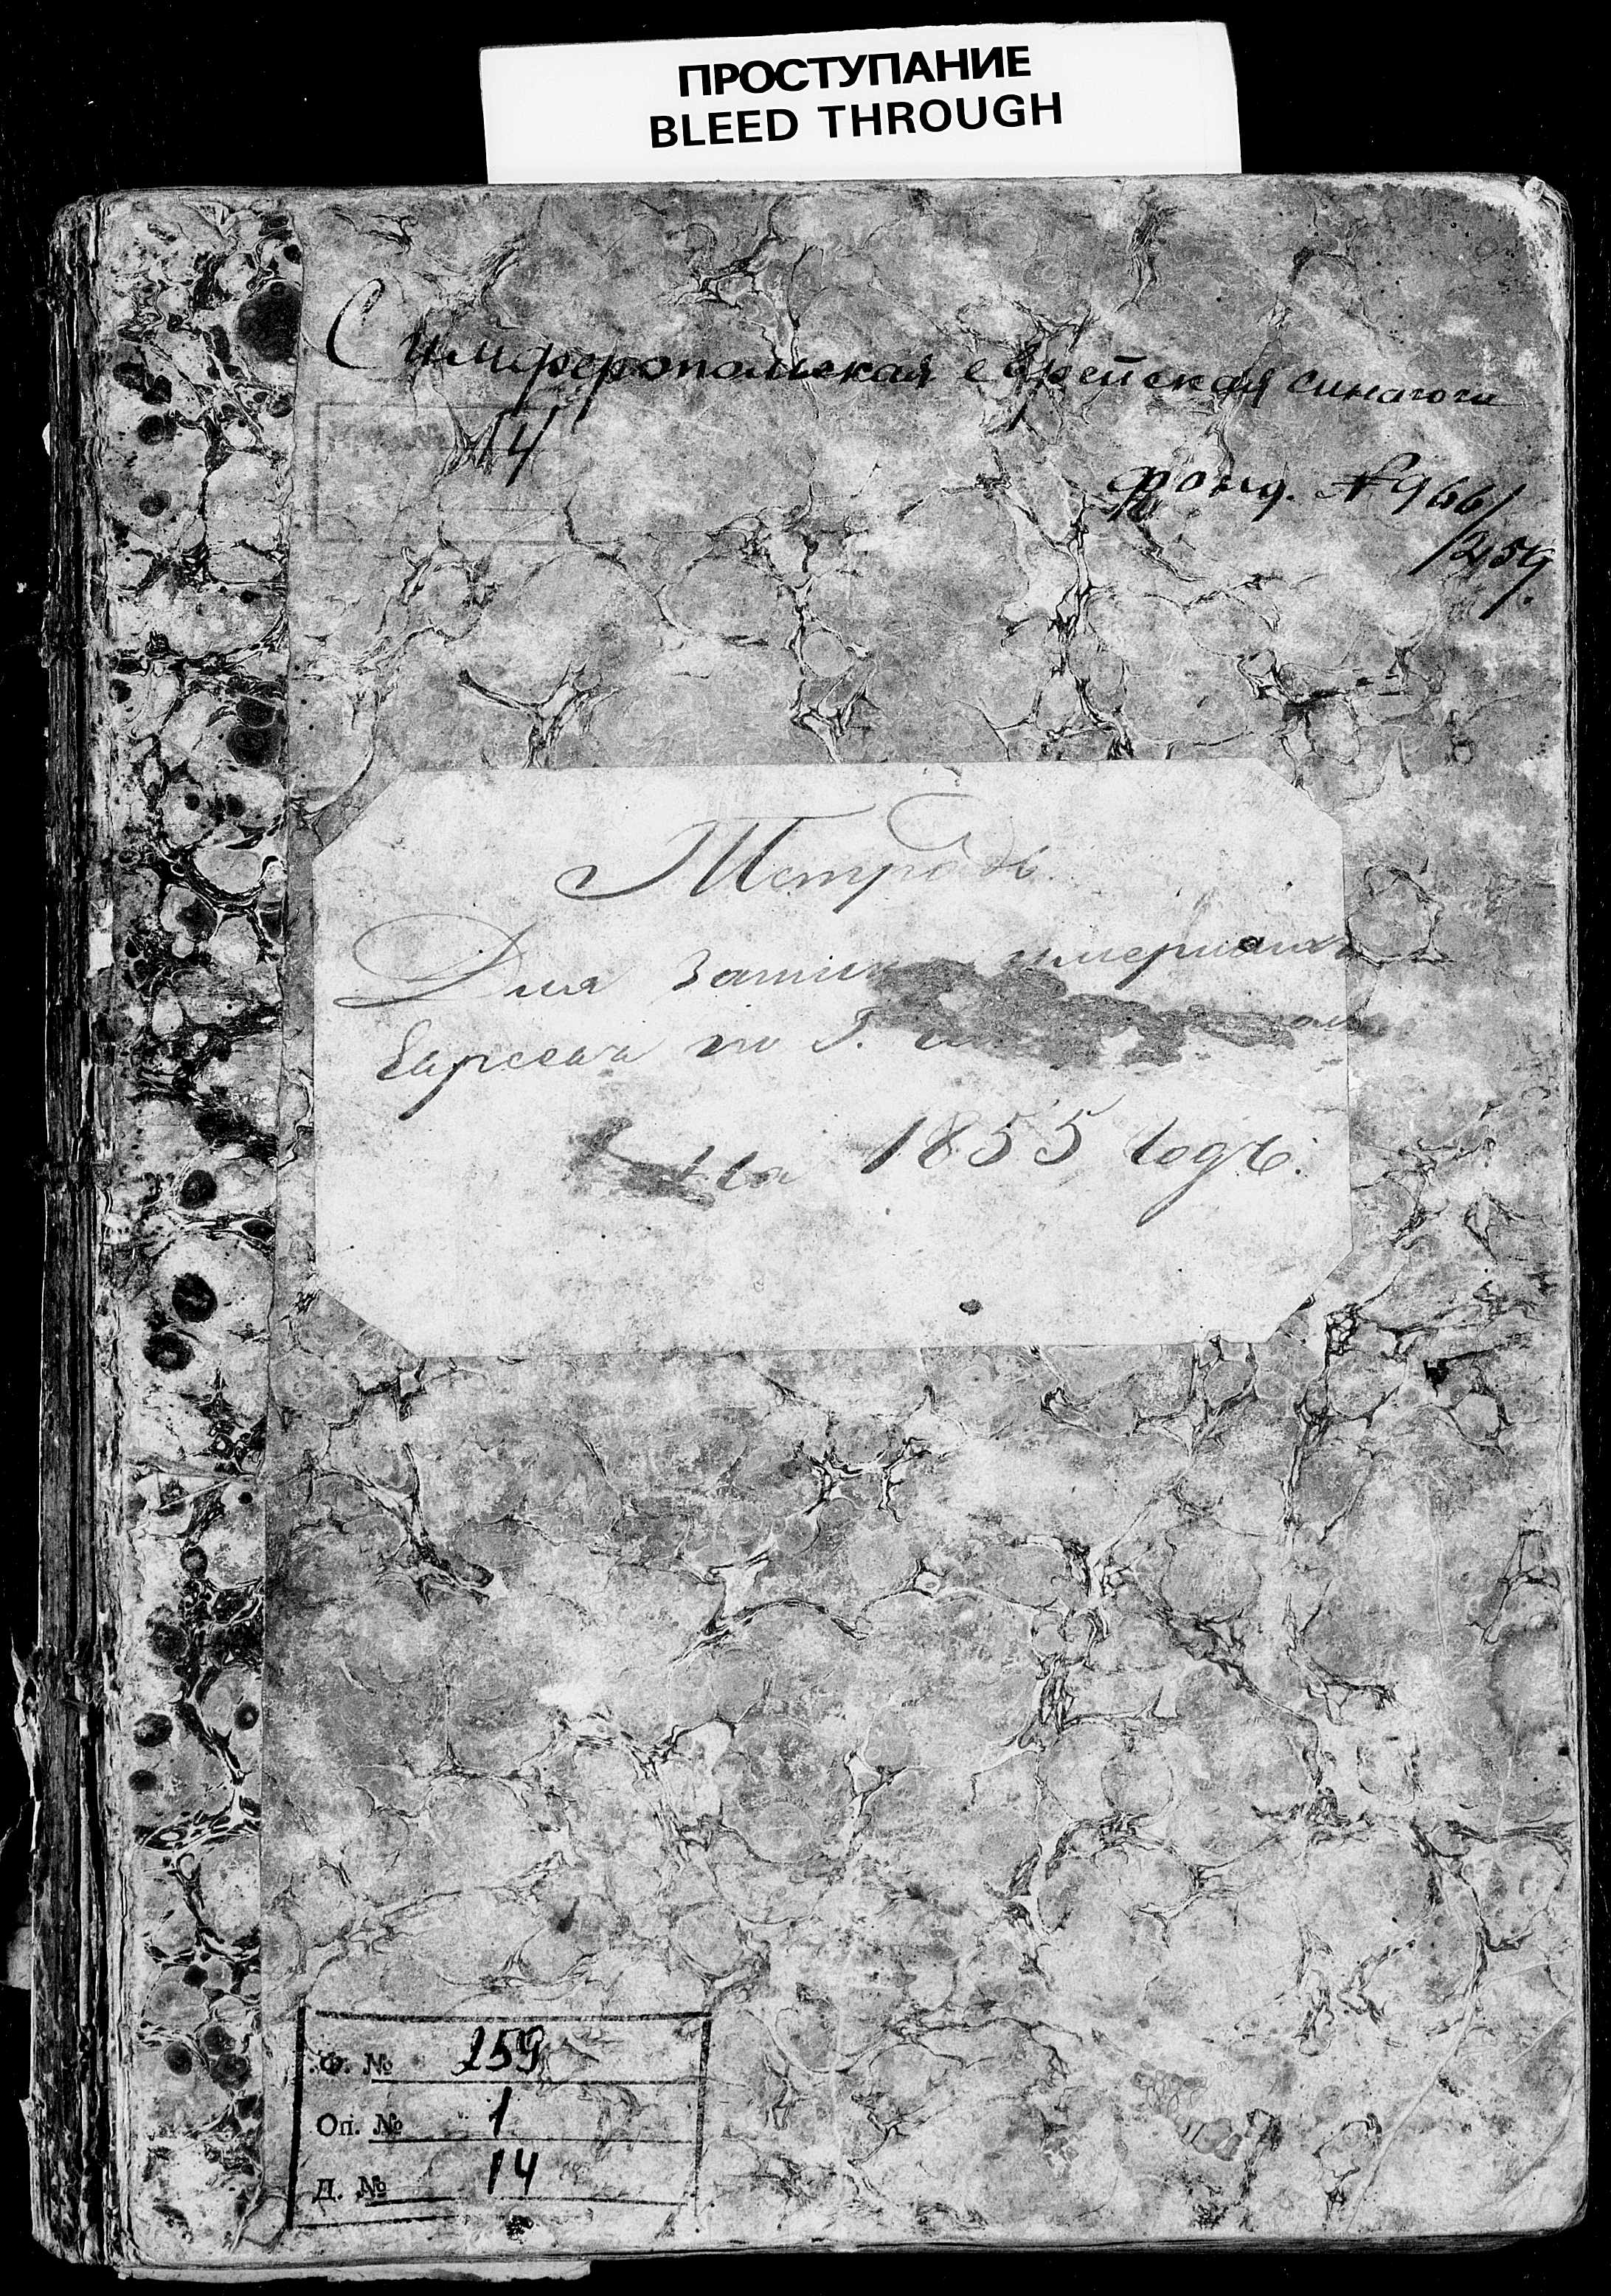 ПРОСТУПАНИЕ
BLEED THROUGH
Симферопольская еврейская синагога
14
фонд. № 966/
259.
Тетрадь
Для записи умершихъ
Евреевъ по Г.
На 1855 годъ.
Ф. № 259
Оп. № 1
Д. № 14